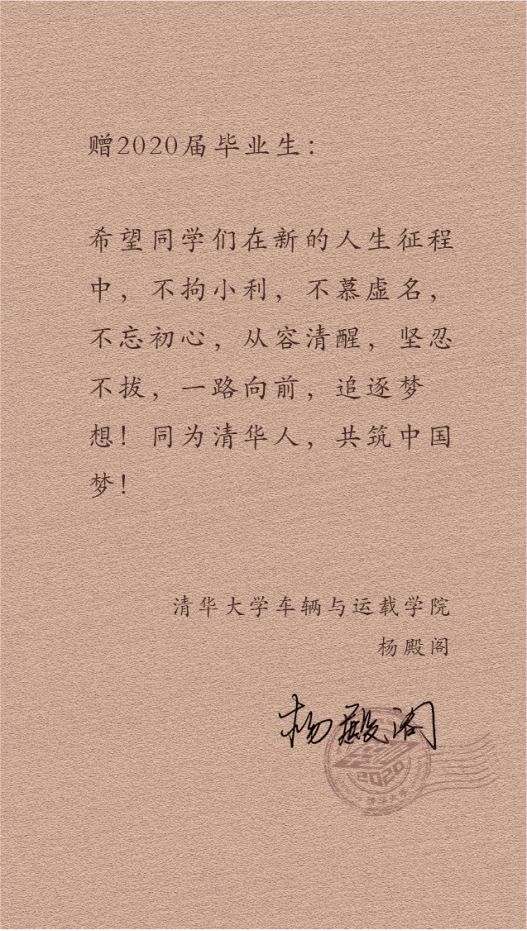 赠2020届毕业生：
希望同学们在新的人生征程
中，不拘小利，不慕虚名，
不忘初心，从容清醒，坚忍
不拔，一路向前，追逐梦
想！同为清华人，共筑中国
梦！
清华大学车辆与运载学院
杨殿阁
杨殿阁
2020
清华大学